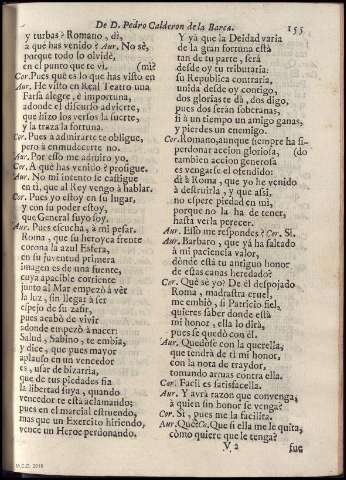 De D. Pedro Calderon de la Barca.
155
y turbas? Romano, dì,
à què has venido? Aur. No sè,
porque todo lo olvidè,
en el punto que te vì. (mi?
Cor. Pues què es lo que has visto en
Aur. He visto en Real Teatro una
farsa alegre, è importuna,
adonde el discurso advierte,
que hizo los versos la suerte,
y la traza la fortuna.
Cor. Pues à admirarte te obligue,
pero à enmudecerte no.
Aur. Por esso me admiro yo.
Cor. A què has venido? prosigue.
Aur. No mi intento se castigue
en tì, que al Rey vengo à hablar.
Cor. Pues yo estoy en su lugar,
y con su poder estoy,
que General suyo soy.
Aur. Pues escucha, à mi pesar.
Roma, que su heroyca frente
corona la azul Esfera,
en su juventud primera
imagen es de una fuente,
cuya apacible corriente
junto al Mar empezò à vèr
la luz, sin llegar à ser
espejo de su zafir,
pues acabò de vivir
adonde empezò à nacer:
Salud, Sabino, te embia,
y dice, que pues mayor
aplauso en un vencedor
es, usar de bizarria,
que de tus piedades fia
la libertad suya, quando
vencedor te està aclamando;
pues en el marcial estruendo,
mas que un Exercito hiriendo,
vence un Heroe perdonando.
Y yà que la Deidad varia
de la gran fortuna està
tan de tu parte, serà
desde oy tu tributaria:
su Republica contraria,
unida desde oy contigo,
dos glorias te dà, dos digo,
pues dos seràn soberanas,
si à un tiempo un amigo ganas,
y pierdes un enemigo.
Cor. Romano, aunque siempre ha si-
perdonar accion gloriosa, (do
tambien accion generosa
es vengarse el ofendido:
dì à Roma, que yo he venido
à destruirla, y que assi,
no espere piedad en mì,
porque no la ha de tener,
hasta verla perecer.
Aur. Esso me respondes? Cor. Sì.
Aur. Barbaro, que yà ha faltado
à mi paciencia valor,
dònde està tu antiguo honor
de estas canas heredado?
Cor. Què sè yo? De èl despojado
Roma, madrastra cruel,
me embiò, si Patricio fiel,
quieres saber donde està
mi honor, ella lo dirà,
pues se quedò con èl.
Aur. Quedòse con la querella,
que tendrà de tì mi honor,
con la nota de traydor,
tomando armas contra ella.
Cor. Facil es satisfacella.
Aur. Y avrà razon que convenza,
à quien sin honor se venza?
Cor. Sì, pues me la facilita.
Aur. Què? Co. Que si ella me le quita,
còmo quiere que le tenga?
V 2
sue
M.C.D. 2018